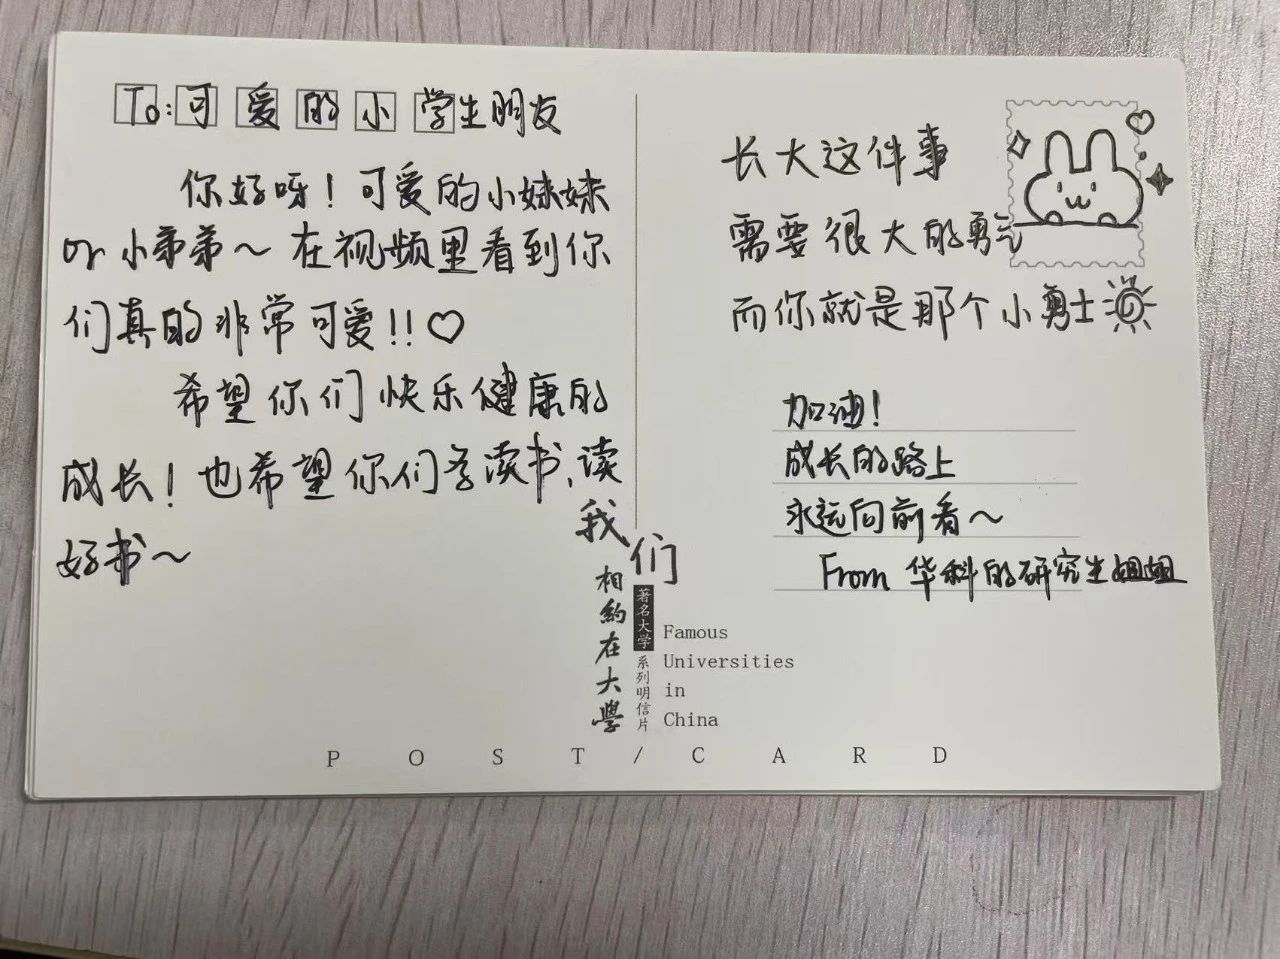 To:可爱的小学生朋友
你好呀！可爱的小妹妹
or 小弟弟～在视频里看到你
们真的非常可爱!!♡
希望你们快乐健康的
成长！也希望你们多读书、读
好书～
长大这件事
需要很大的勇气
而你就是那个小勇士
加油！
成长的路上
永远向前看～
From 华科的研究生姐姐
我们
相約在大學
著名大学系列明信片
Famous
Universities
in
China
POST/CARD